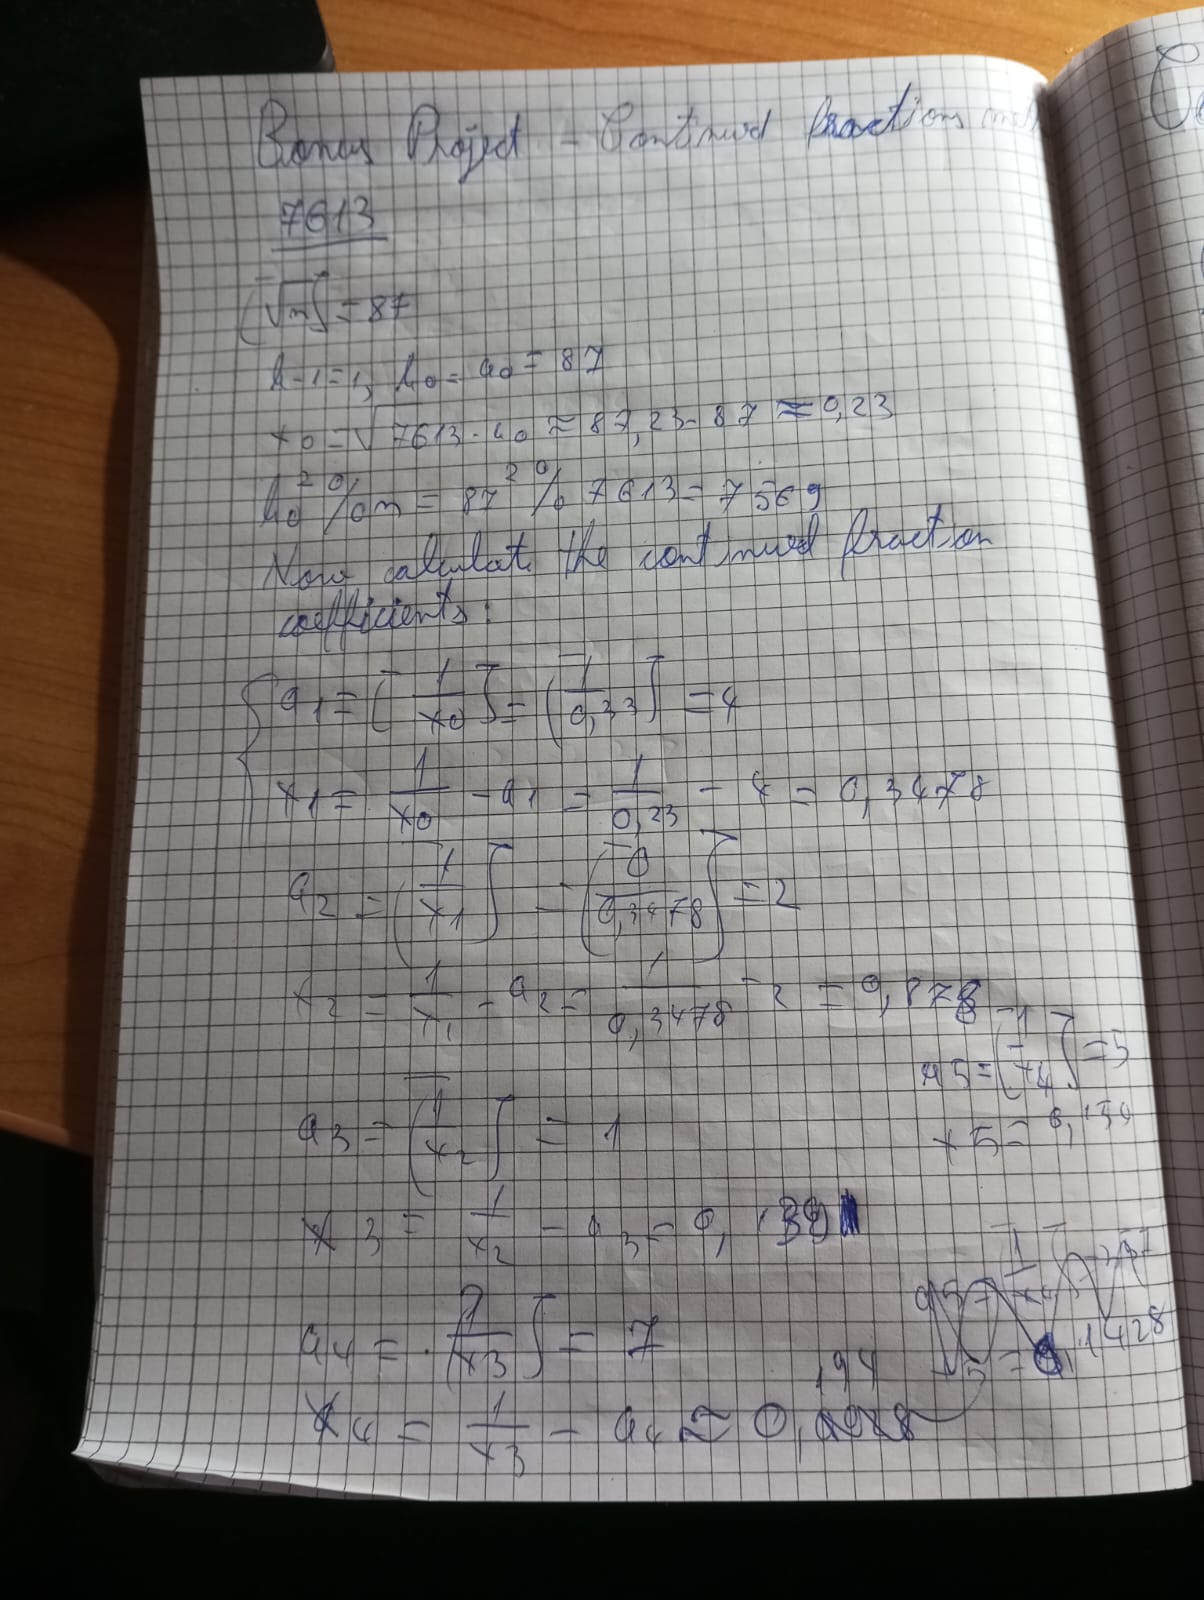 Bonus Project - Continued fractions
7613
[√n] = 87
b-1=1, b0 = a0 = 87
x0 = √7613 - a0 ≈ 87,23 - 87 ≈ 0,23
b0² % n = 87² % 7613 = 7569
Now calculate the continued fraction
coefficients:
a1 = [1/x0] = [1/0,23] = 4
x1 = 1/x0 - a1 = 1/0,23 - 4 = 0,3478
a2 = [1/x1] = [0/0,3478] = 2
x2 = 1/x1 - a2 = 1/0,3478 - 2 = 0,878
a3 = [1/x2] = 1
x3 = 1/x2 - a3 = 0,139
a4 = [1/x3] = 7
x4 = 1/x3 - a4 ≈ 0,194
a5 = [1/x4] = 5
x5 = 0,154